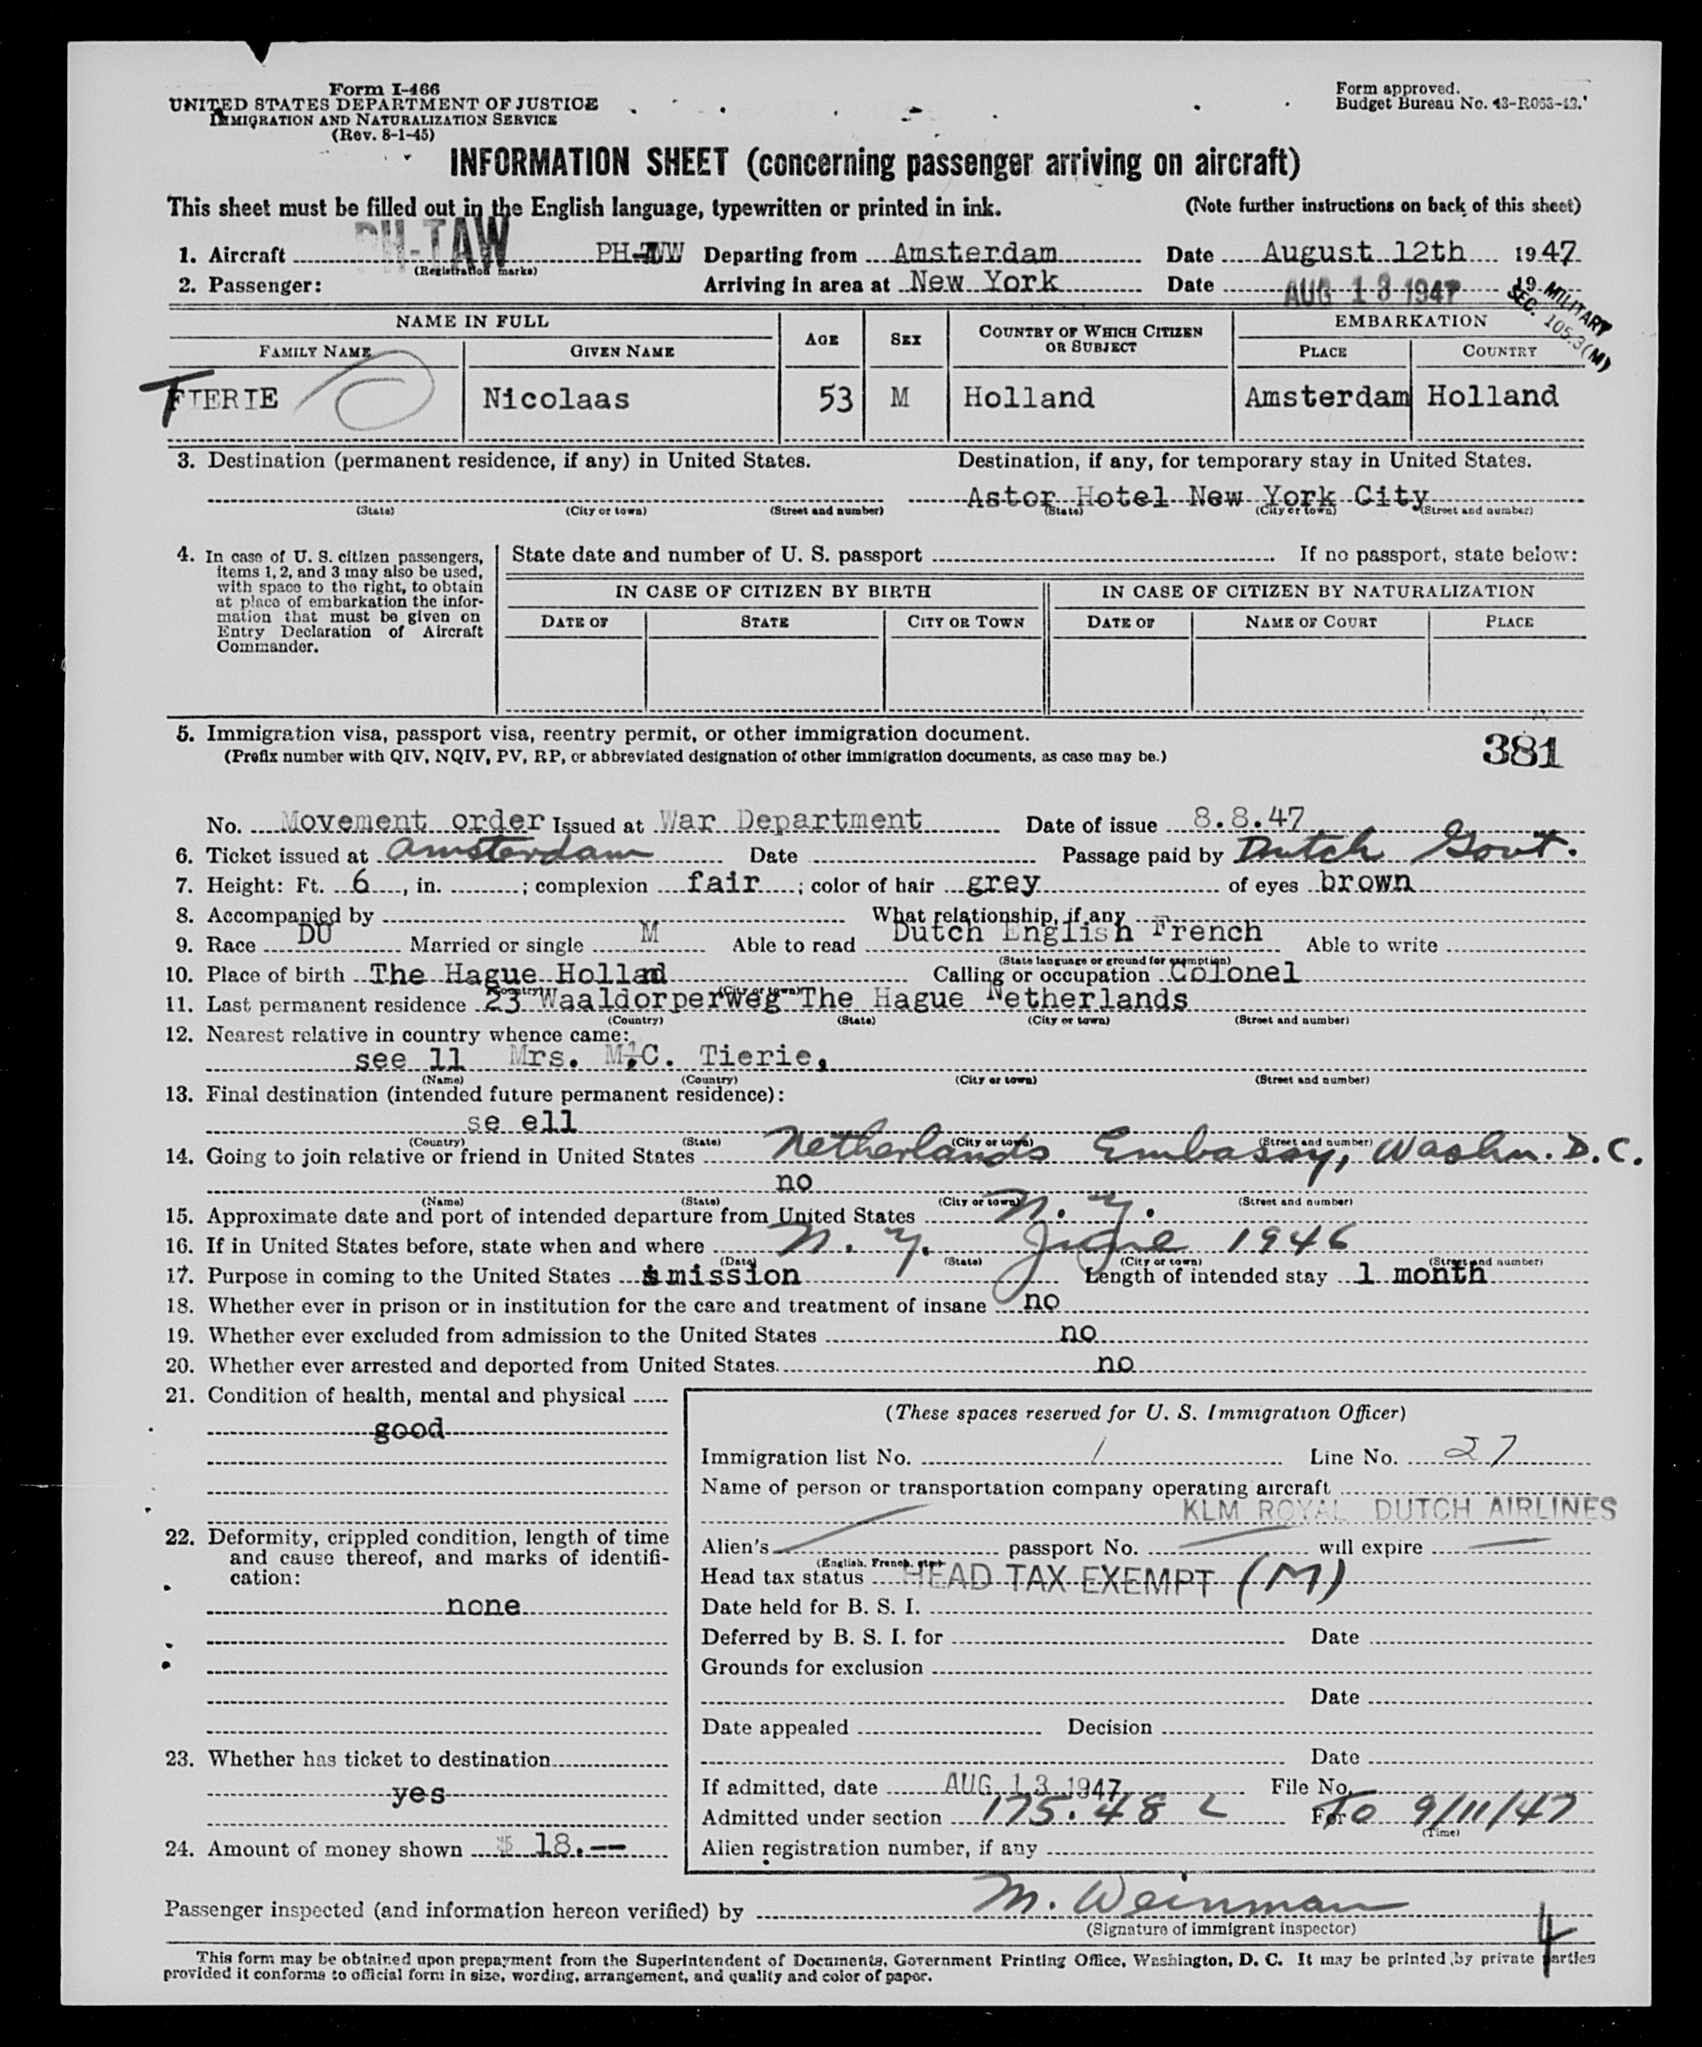 Form I-466
UNITED STATES DEPARTMENT OF JUSTICE
IMMIGRATION AND NATURALIZATION SERVICE
(Rev. 8-1-45)
Form approved.
Budget Bureau No. 43-R063-43.
INFORMATION SHEET (concerning passenger arriving on aircraft)
This sheet must be filled out in the English language, typewritten or printed in ink. (Note further instructions on back of this sheet)
1. Aircraft PH-TAW Departing from Amsterdam Date August 12th 1947
(Registration marks)
2. Passenger: Arriving in area at New York Date AUG 13 1947 19
MILITARY
SEC. 105.3(M)
NAME IN FULL AGE SEX COUNTRY OF WHICH CITIZEN OR SUBJECT EMBARKATION
FAMILY NAME GIVEN NAME PLACE COUNTRY
TIERIE Nicolaas 53 M Holland Amsterdam Holland
3. Destination (permanent residence, if any) in United States. Destination, if any, for temporary stay in United States.
Astor Hotel New York City
(State) (City or town) (Street and number) (State) (City or town) (Street and number)
4. In case of U. S. citizen passengers, items 1, 2, and 3 may also be used, with space to the right, to obtain at place of embarkation the information that must be given on Entry Declaration of Aircraft Commander.
State date and number of U. S. passport If no passport, state below:
IN CASE OF CITIZEN BY BIRTH IN CASE OF CITIZEN BY NATURALIZATION
DATE OF STATE CITY OR TOWN DATE OF NAME OF COURT PLACE
5. Immigration visa, passport visa, reentry permit, or other immigration document.
(Prefix number with QIV, NQIV, PV, RP, or abbreviated designation of other immigration documents, as case may be.)
381
No. Movement order Issued at War Department Date of issue 8.8.47
6. Ticket issued at Amsterdam Date Passage paid by Dutch Govt.
7. Height: Ft. 6, in. ; complexion fair ; color of hair grey of eyes brown
8. Accompanied by What relationship, if any
9. Race DU Married or single M Able to read Dutch English French Able to write
(State language or ground for exemption)
10. Place of birth The Hague Holland Calling or occupation Colonel
(Country) (City or town)
11. Last permanent residence 23 Waaldorperweg The Hague Netherlands
(Country) (State) (City or town) (Street and number)
12. Nearest relative in country whence came:
see 11 Mrs. M.C. Tierie,
(Name) (Country) (City or town) (Street and number)
13. Final destination (intended future permanent residence):
se ell
(Country) (State) (City or town) (Street and number)
14. Going to join relative or friend in United States Netherlands Embassy, Washn. D.C.
no
(Name) (State) (City or town) (Street and number)
15. Approximate date and port of intended departure from United States N.Y.
16. If in United States before, state when and where N.Y. June 1946
(Date) (State) (City or town) (Street and number)
17. Purpose in coming to the United States mission Length of intended stay 1 month
18. Whether ever in prison or in institution for the care and treatment of insane no
19. Whether ever excluded from admission to the United States no
20. Whether ever arrested and deported from United States no
21. Condition of health, mental and physical
good
22. Deformity, crippled condition, length of time and cause thereof, and marks of identification:
none
23. Whether has ticket to destination
yes
24. Amount of money shown $ 18.--
(These spaces reserved for U. S. Immigration Officer)
Immigration list No. 1 Line No. 27
Name of person or transportation company operating aircraft
KLM ROYAL DUTCH AIRLINES
Alien's passport No. will expire
(English, French, etc.)
Head tax status HEAD TAX EXEMPT (M)
Date held for B. S. I.
Deferred by B. S. I. for Date
Grounds for exclusion
Date
Date appealed Decision
Date
If admitted, date AUG 13 1947 File No.
Admitted under section 175.48 For To 9/11/47
(Time)
Alien registration number, if any
Passenger inspected (and information hereon verified) by M. Weinman
(Signature of immigrant inspector)
4
This form may be obtained upon prepayment from the Superintendent of Documents, Government Printing Office, Washington, D. C. It may be printed by private parties
provided it conforms to official form in size, wording, arrangement, and quality and color of paper.